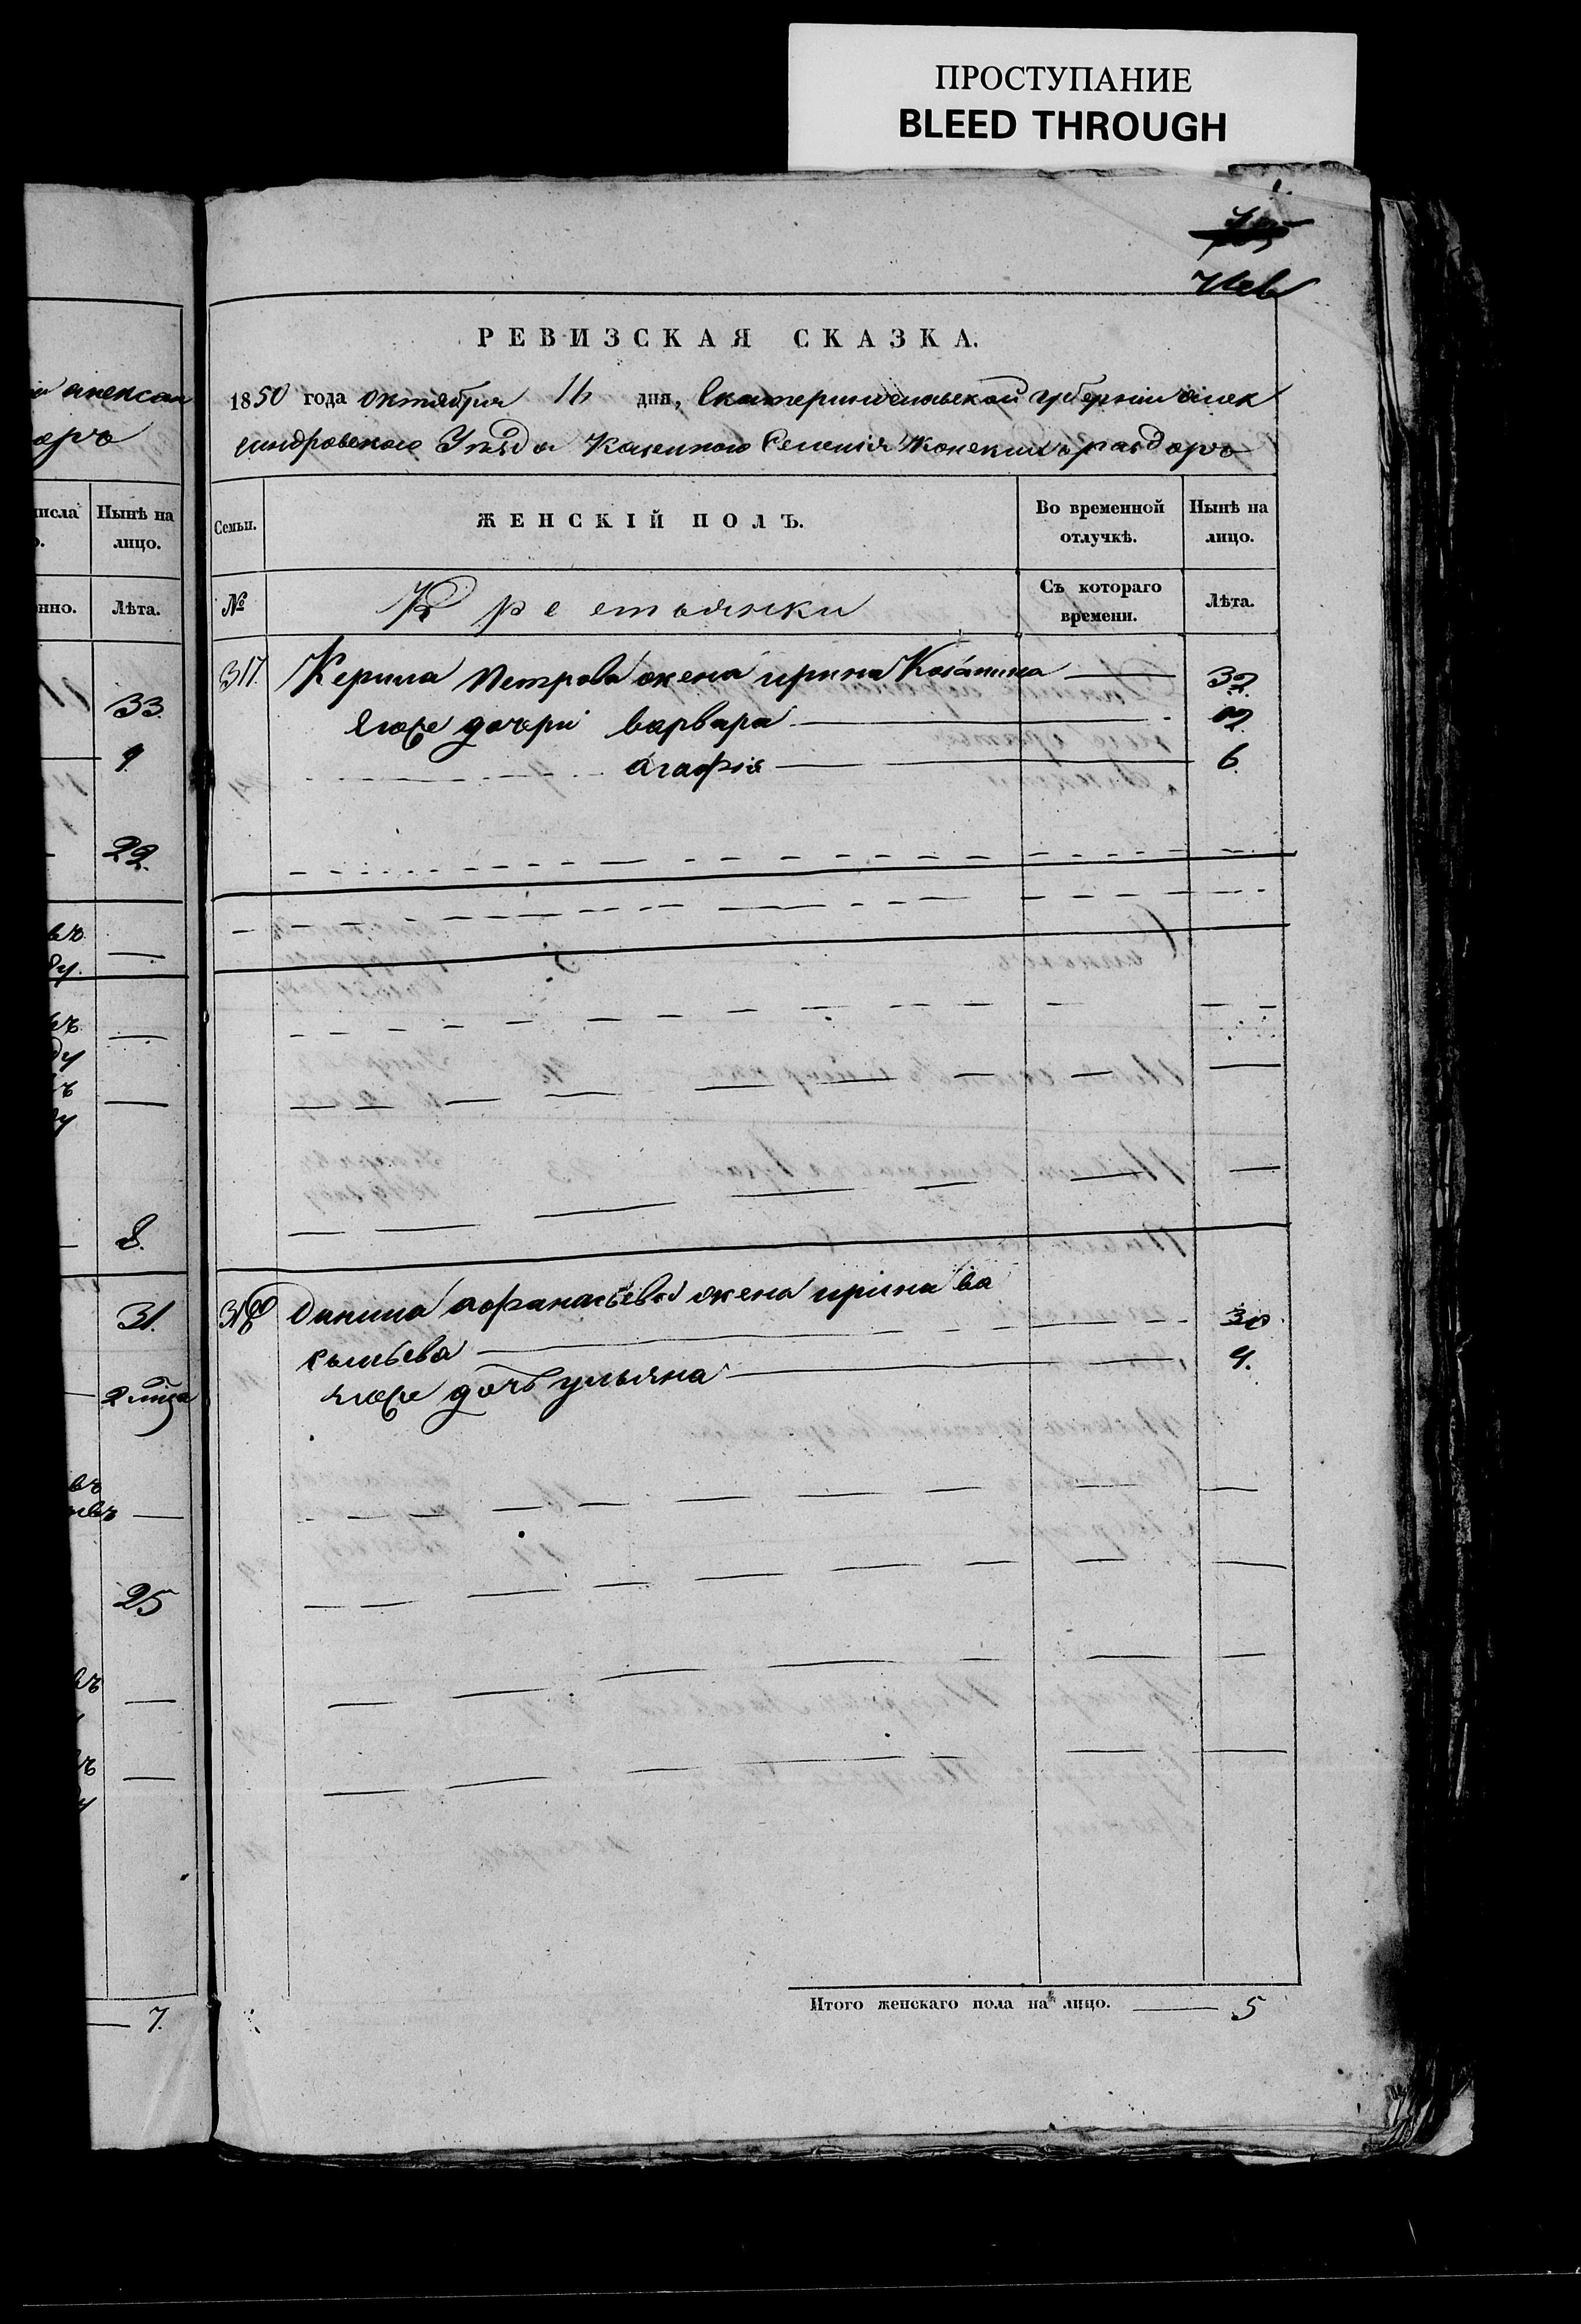 ПРОСТУПАНИЕ
BLEED THROUGH
РЕВИЗСКАЯ СКАЗКА.
1850 года октября 16 дня, Екатеринославской губерніи Алек
сандровскаго Уѣзда Казеннаго Селенія Конскихъ раздоръ
Семьи.
ЖЕНСКІЙ ПОЛЪ.
Во временной отлучкѣ.
Нынѣ на лицо.
№
Крестьянки
Съ котораго времени.
Лѣта.
317. Керила Петрова жена ирина Козмина 32.
Егоже дочери варвара
агафія 6.
318 Данила афанасьева жена ирина ва
сильева 30.
егоже дочь ульяна 4.
Итого женскаго пола на лицо. 5
алексан
оръ
числа
Нынѣ на лицо.
Лѣта.
33.
9.
22.
въ
ду.
въ
ду
8.
31.
25
въ
7.